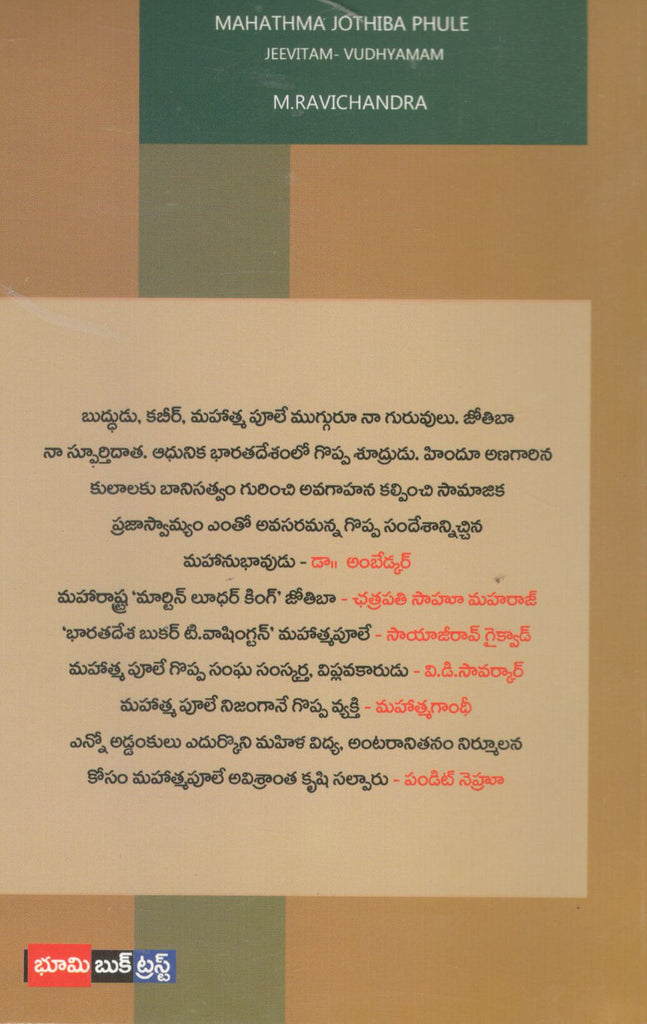 MAHATHMA JOTHIBA PHULE
JEEVITAM- VUDHYAMAM
M.RAVICHANDRA
బుద్ధుడు, కబీర్, మహాత్మ పూలే ముగ్గురూ నా గురువులు. జోతిబా
నా స్ఫూర్తిదాత. ఆధునిక భారతదేశంలో గొప్ప శూద్రుడు. హిందూ అణగారిన
కులాలకు బానిసత్వం గురించి అవగాహన కల్పించి సామాజిక
ప్రజాస్వామ్యం ఎంతో అవసరమన్న గొప్ప సందేశాన్నిచ్చిన
మహానుభావుడు - డా॥ అంబేడ్కర్
మహారాష్ట్ర 'మార్టిన్ లూథర్ కింగ్' జోతిబా - ఛత్రపతి సాహూ మహరాజ్
'భారతదేశ బుకర్ టి.వాషింగ్టన్' మహాత్మపూలే - సాయాజీరావ్ గైక్వాడ్
మహాత్మ పూలే గొప్ప సంఘ సంస్కర్త, విప్లవకారుడు - వి.డి.సావర్కార్
మహాత్మ పూలే నిజంగానే గొప్ప వ్యక్తి - మహాత్మగాంధీ
ఎన్నో అడ్డంకులు ఎదుర్కొని మహిళ విద్య, అంటరానితనం నిర్మూలన
కోసం మహాత్మపూలే అవిశ్రాంత కృషి సల్పారు - పండిట్ నెహ్రూ
భూమి బుక్ ట్రస్ట్